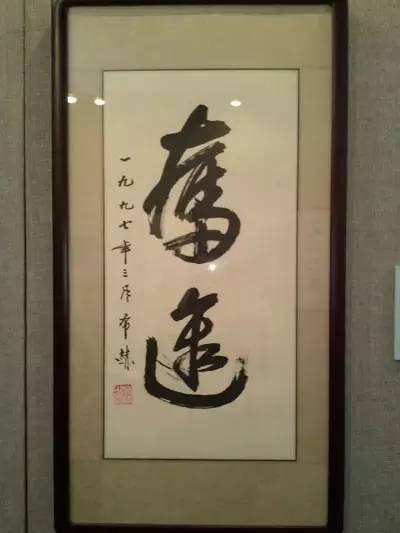 奮進
一九九七年三月 布赫